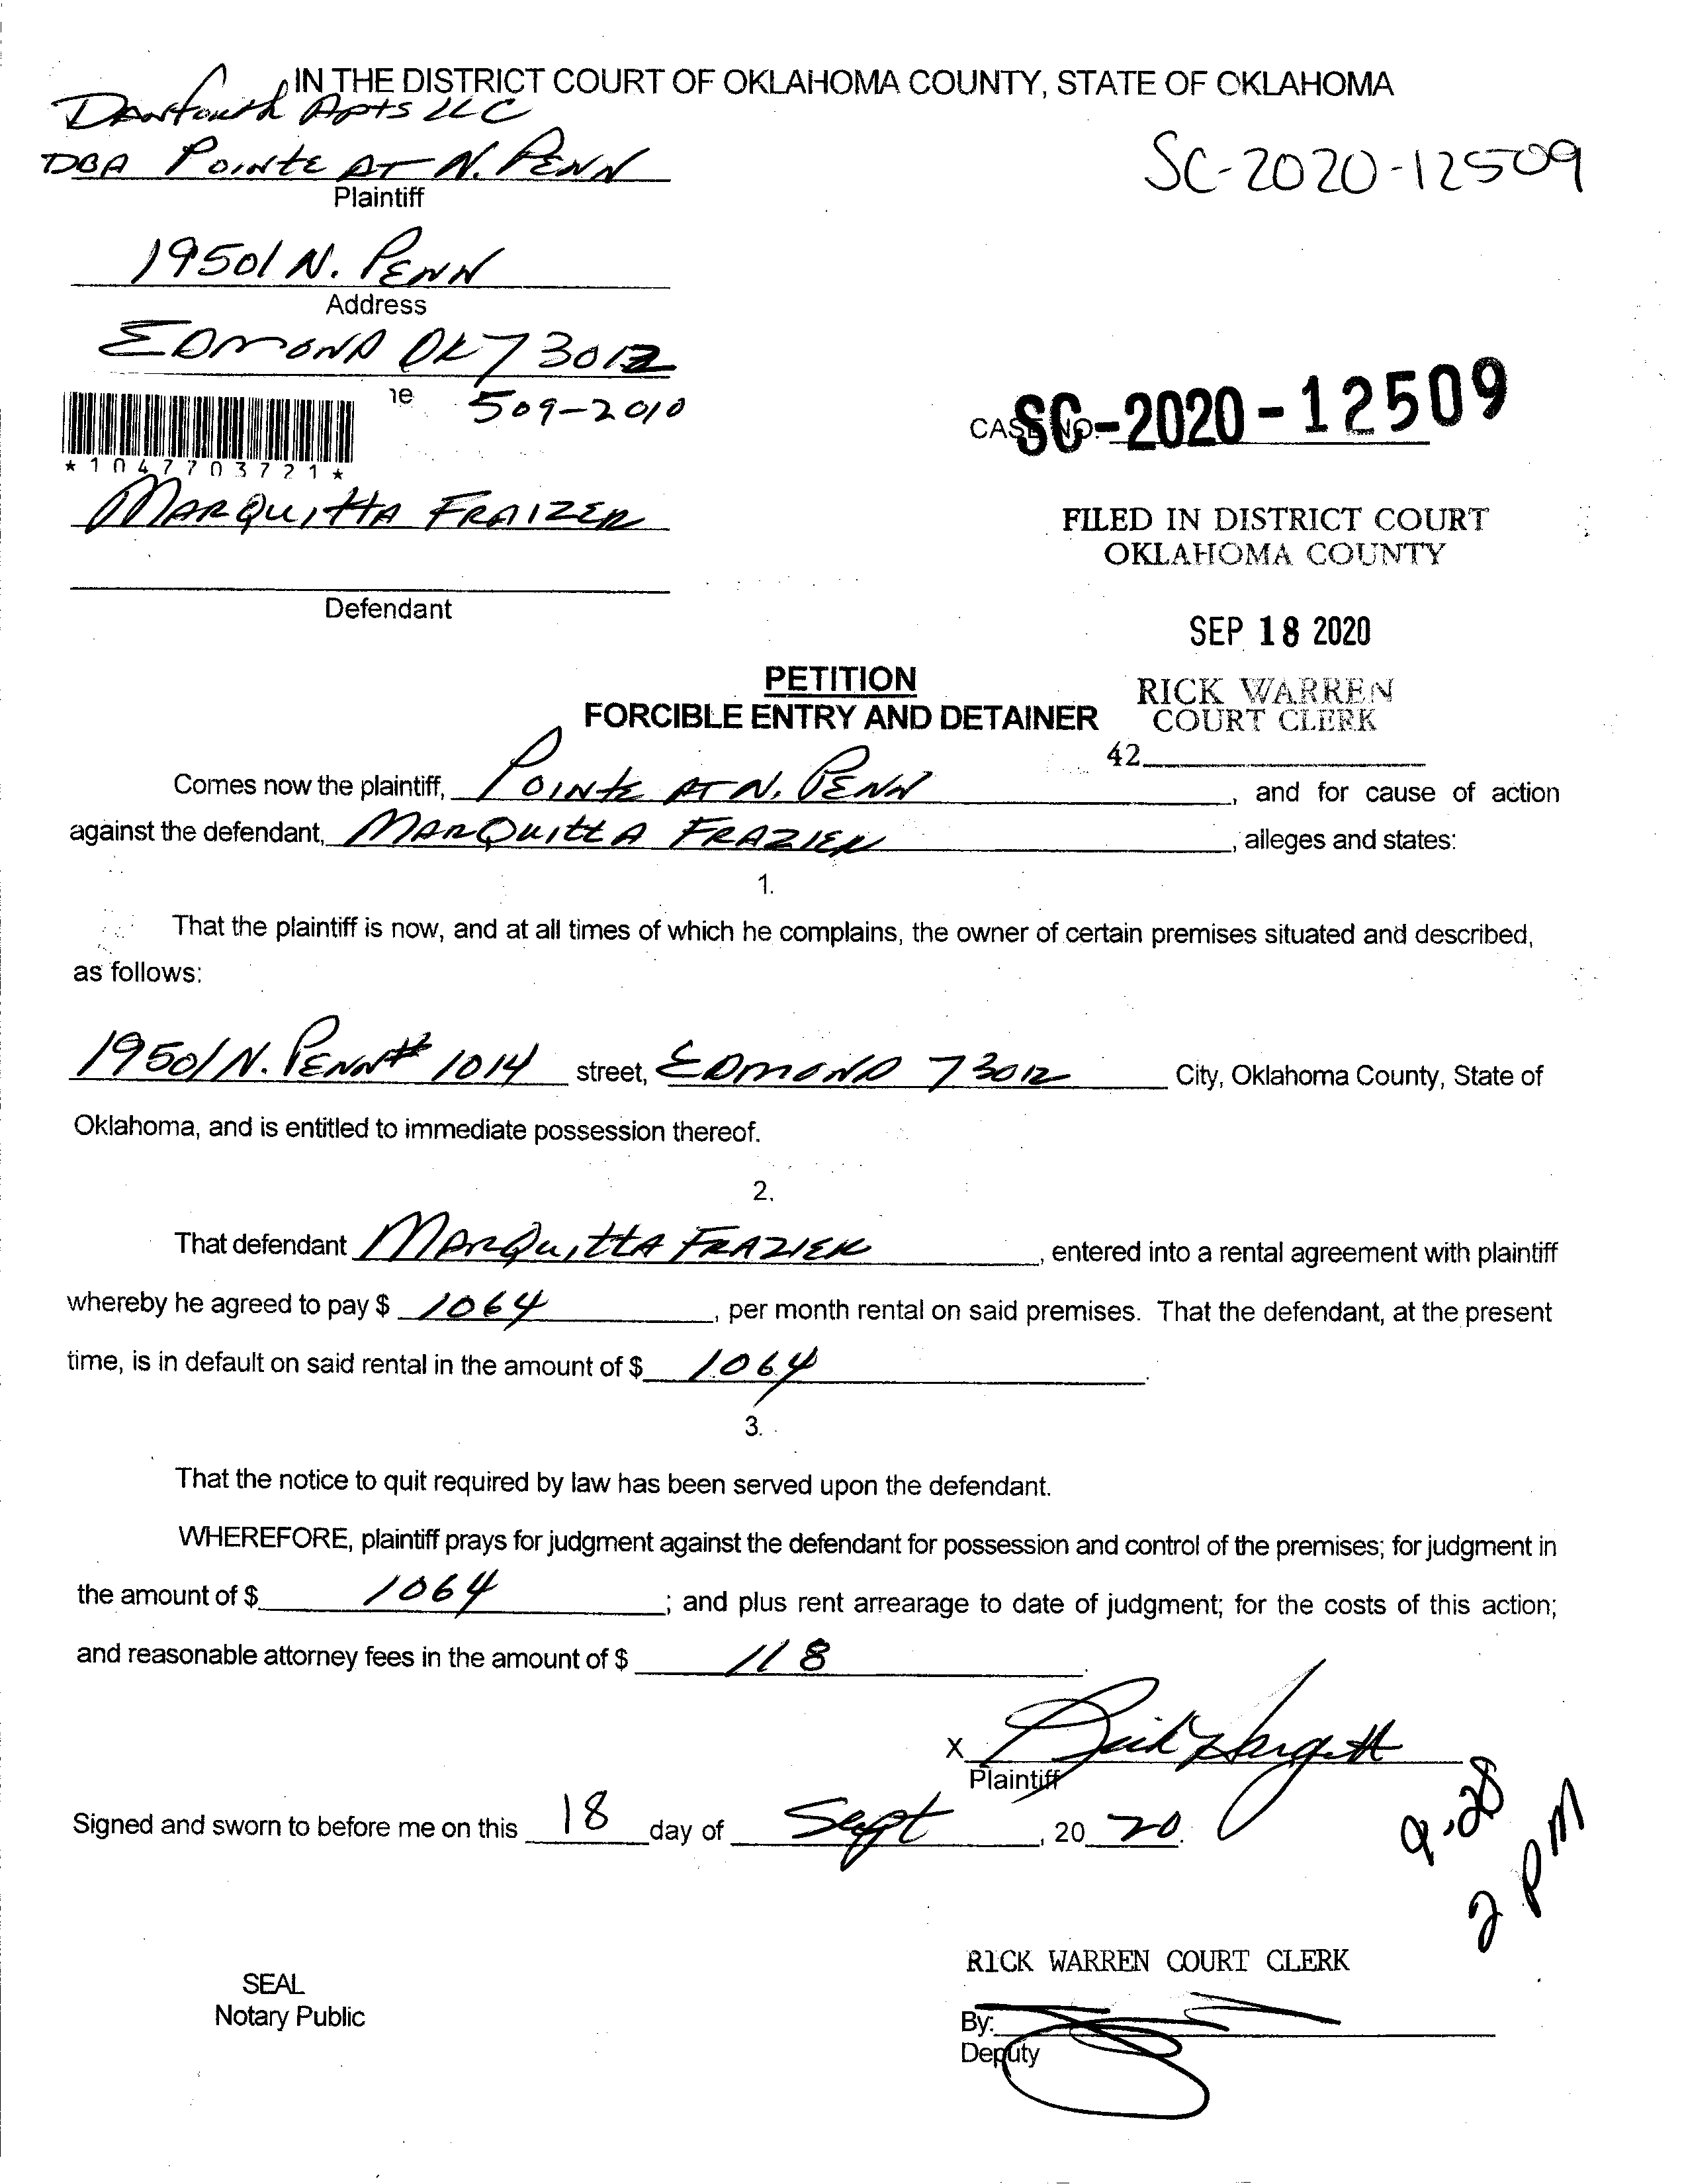 IN THE DISTRICT COURT OF OKLAHOMA COUNTY, STATE OF OKLAHOMA
Danforth Apts LLC
DBA POINTE AT N. PENN
Plaintiff
SC-2020-12509
19501 N. PENN
Address
EDMOND OK 73012
ne 509-2010
CASE NO. SC-2020-12509
*1047703721*
MARQUITTA FRAIZER
FILED IN DISTRICT COURT
OKLAHOMA COUNTY
Defendant
SEP 18 2020
PETITION
FORCIBLE ENTRY AND DETAINER
RICK WARREN
COURT CLERK
42
Comes now the plaintiff, POINTE AT N. PENN, and for cause of action
against the defendant, MARQUITTA FRAZIER, alleges and states:
1.
That the plaintiff is now, and at all times of which he complains, the owner of certain premises situated and described,
as follows:
19501 N. PENN # 1014 street, EDMOND 73012 City, Oklahoma County, State of
Oklahoma, and is entitled to immediate possession thereof.
2.
That defendant MARQUITTA FRAZIER, entered into a rental agreement with plaintiff
whereby he agreed to pay $ 1064, per month rental on said premises. That the defendant, at the present
time, is in default on said rental in the amount of $ 1064.
3.
That the notice to quit required by law has been served upon the defendant.
WHEREFORE, plaintiff prays for judgment against the defendant for possession and control of the premises; for judgment in
the amount of $ 1064; and plus rent arrearage to date of judgment; for the costs of this action;
and reasonable attorney fees in the amount of $ 118.
X
Plaintiff
Signed and sworn to before me on this 18 day of Sept, 20 20.
9.28
2 PM
RICK WARREN COURT CLERK
SEAL
Notary Public
By:
Deputy